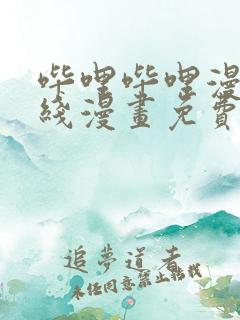 哔哩哔哩漫
线漫畫免費
追夢道者
未经同意禁止转载